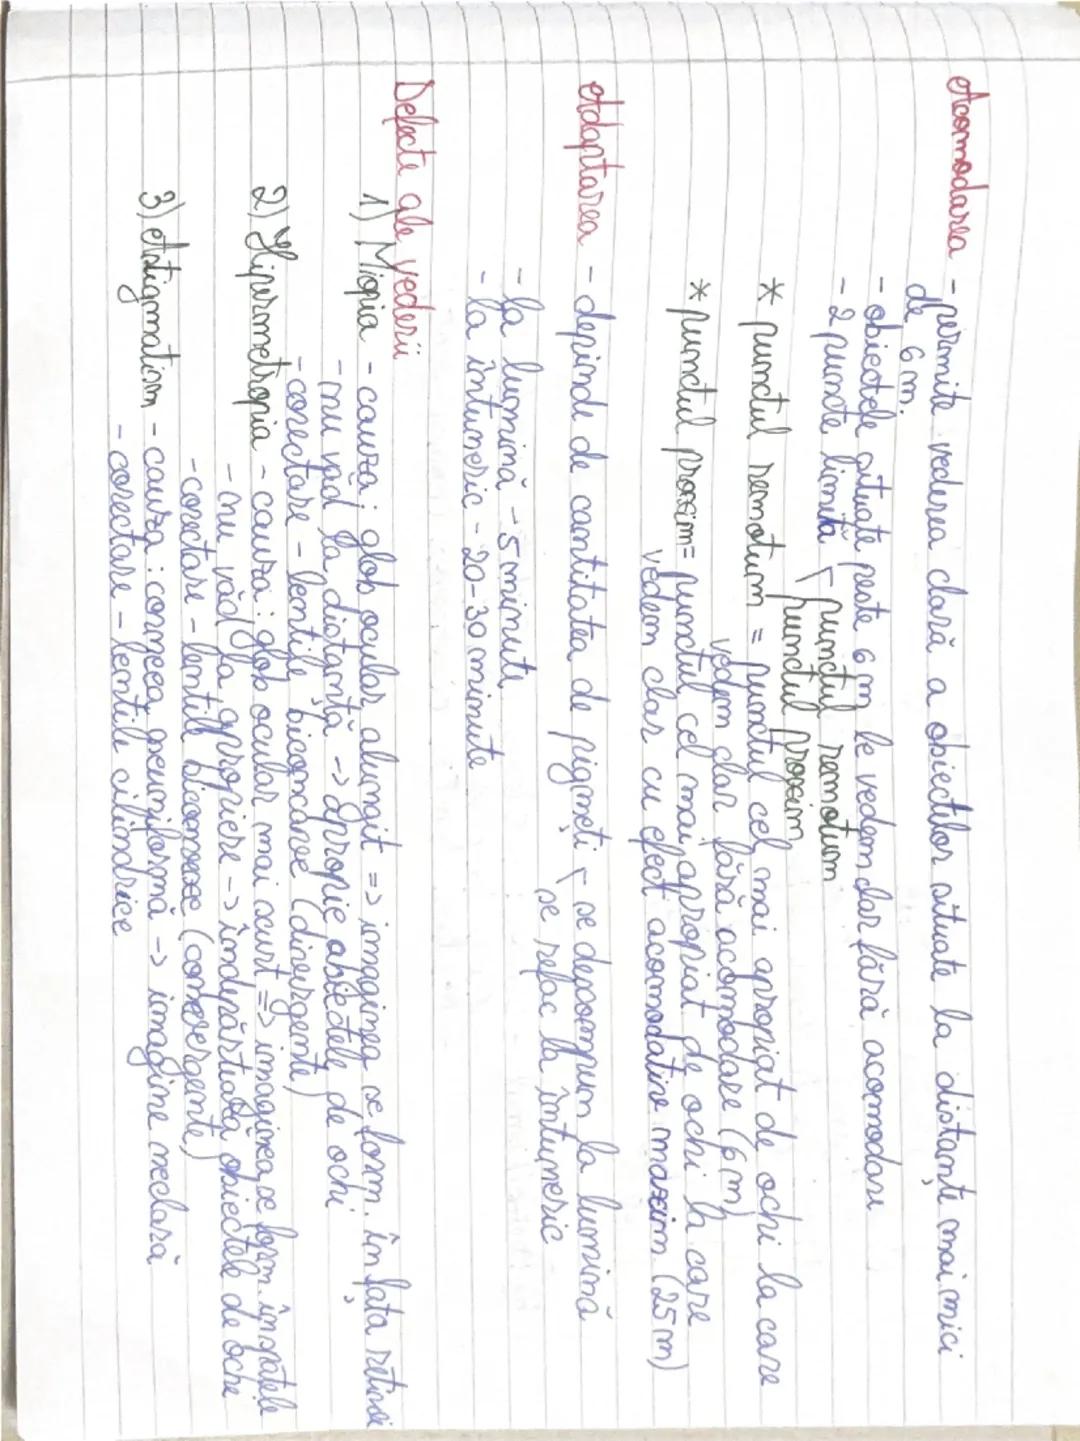 Acomodarea - permite vederea clară a obiectilor situate la distanțe mai mici
de 6 m.
- obiectele situate peste 6 m le vedem clar fără acomodare
- 2 puncte limită < punctul remotum
punctul proxim
* punctul remotum = punctul cel mai apropiat de ochi la care
vedem clar fără acomodare (6m)
* punctul proxim = punctul cel mai apropiat de ochi la care
vedem clar cu efect acomodativ maxim (25m)
Adaptarea - depinde de cantitatea de pigmeți < se descompun la lumină
se refac la întuneric
- la lumină - 5 minute
- la întuneric - 20-30 minute
Defecte ale vederii
1) Miopia - cauza: glob ocular alungit => imaginea se form. în fața retinei
- nu văd la distanță -> apropie obiectele de ochi
- corectare - lentile biconcave (divergente)
2) Hipermetropia - cauza: glob ocular mai scurt => imaginea se form. în spatele
- nu văd la apropiere -> îndepărtează obiectele de ochi
- corectare - lentile biconvexe (convergente)
3) Astigmatism - cauza: corneea neuniformă -> imagine neclară
- corectare - lentile cilindrice